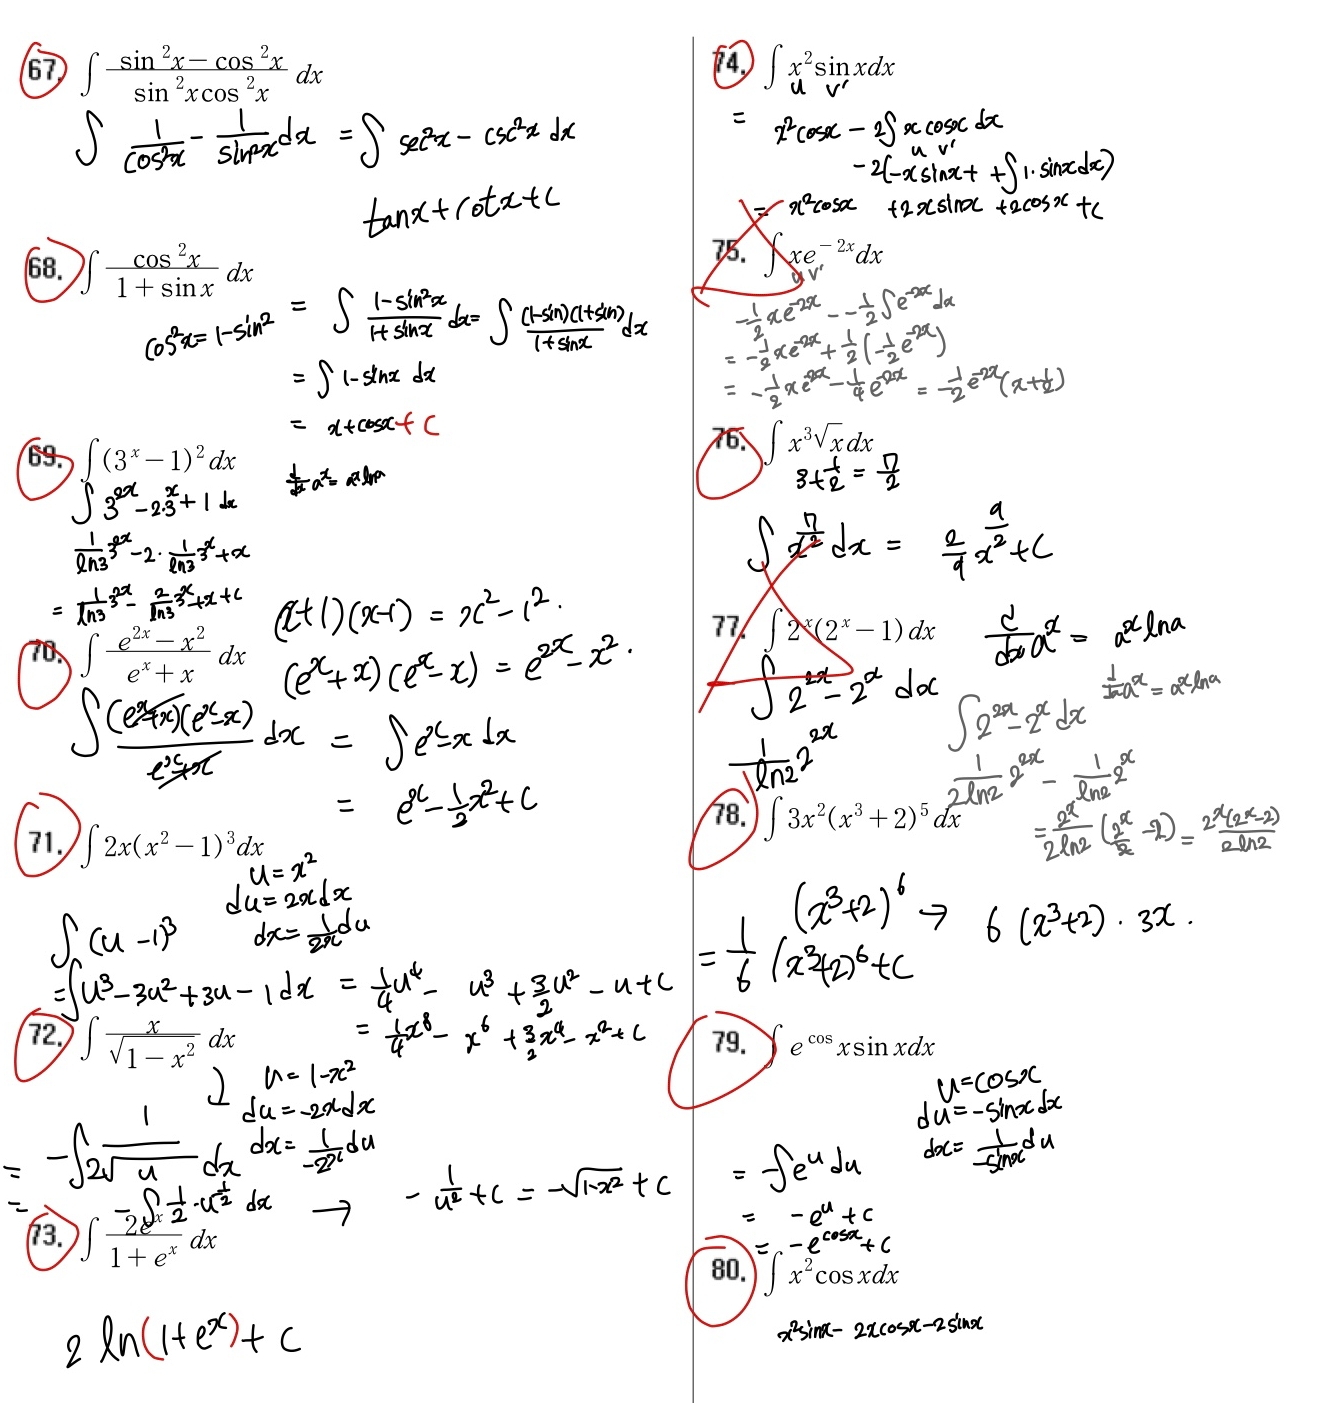 67. ∫ (sin²x − cos²x)/(sin²x cos²x) dx
∫ 1/cos²x − 1/sin²x dx = ∫ sec²x − csc²x dx
tanx + cotx + c
68. ∫ cos²x/(1 + sin x) dx
cos²x = 1−sin²
= ∫ (1−sin²x)/(1+sinx) dx = ∫ (1−sin)(1+sin)/(1+sinx) dx
= ∫ 1−sinx dx
= x+cosx + c
69. ∫ (3^x − 1)² dx
d/dx a^x = a^x lna
∫ 3^2x − 2·3^x + 1 dx
1/ln3 3^2x − 2· 1/ln3 3^x + x
= 1/ln3 3^2x − 2/ln3 3^x + x + c
70. ∫ (e^2x − x²)/(e^x + x) dx
(x+1)(x−1) = x² − 1².
(e^x+x)(e^x−x) = e^2x − x².
∫ (e^x+x)(e^x−x)/(e^x+x) dx = ∫ e^x − x dx
= e^x − 1/2 x² + c
71. ∫ 2x(x² − 1)³ dx
u = x²
du = 2x dx
dx = 1/2x du
∫ (u −1)³
= ∫ u³ − 3u² + 3u − 1 dx = 1/4 u⁴ − u³ + 3/2 u² − u + c
= 1/4 x⁸ − x⁶ + 3/2 x⁴ − x² + c
72. ∫ x/√(1 − x²) dx
u = 1−x²
du = −2x dx
dx = 1/−2x du
= −∫ 1/2√u dx
= −∫ 1/2 · u^−1/2 dx → − 1/u^2 + c = −√(1−x²) + c
73. ∫ 2e^x/(1 + e^x) dx
2 ln(1+e^x) + c
74. ∫ x² sin x dx
u v'
= x²cosx − 2∫ x cosx dx
u v'
−2(−x sinx + + ∫ 1·sinx dx)
= x²cosx + 2x sinx + 2cosx + c
75. ∫ xe^−2x dx
u v'
−1/2 xe^−2x − −1/2 ∫ e^−2x dx
= −1/2 xe^−2x + 1/2 (−1/2 e^−2x)
= −1/2 xe^−2x − 1/4 e^−2x = −1/2 e^−2x (x + 1/2)
76. ∫ x³√x dx
3 + 1/2 = 7/2
∫ x^7/2 dx = 2/9 x^9/2 + c
77. ∫ 2^x(2^x − 1) dx
d/dx a^x = a^x lna
∫ 2^2x − 2^x dx
1/ln2 2^2x
d/dx a^x = a^x lna
∫ 2^2x − 2^x dx
1/2ln2 2^2x − 1/ln2 2^x
= 2^x/2ln2 (2^x/2 − 2) = 2^x(2^x−2)/2ln2
78. ∫ 3x²(x³ + 2)⁵ dx
(x³+2)⁶ → 6 (x³+2) · 3x .
= 1/6 (x³+2)⁶ + c
79. ∫ e^cos x sin x dx
u = cosx
du = −sinx dx
dx = 1/−sinx du
= −∫ e^u du
= −e^u + c
= −e^cosx + c
80. ∫ x² cos x dx
x²sinx − 2xcosx − 2sinx